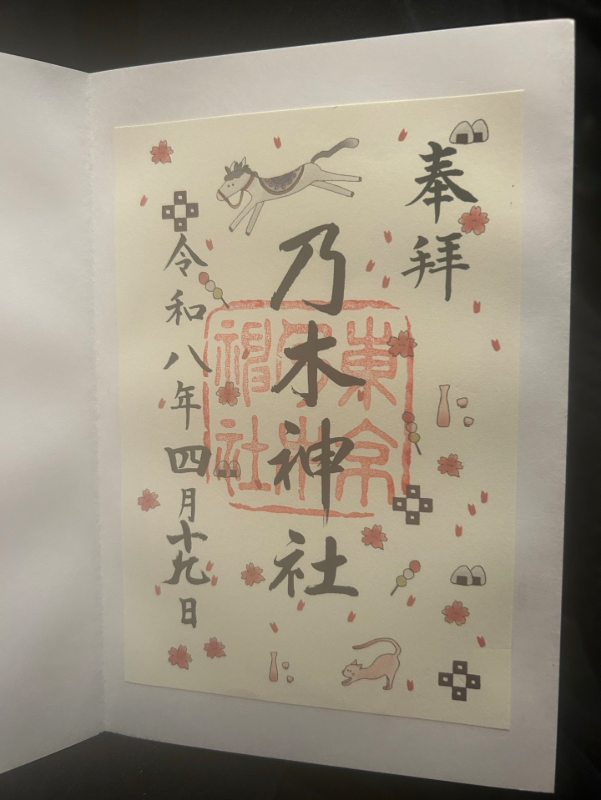 奉拝
乃木神社
東京
乃木
神社
令和八年四月十九日